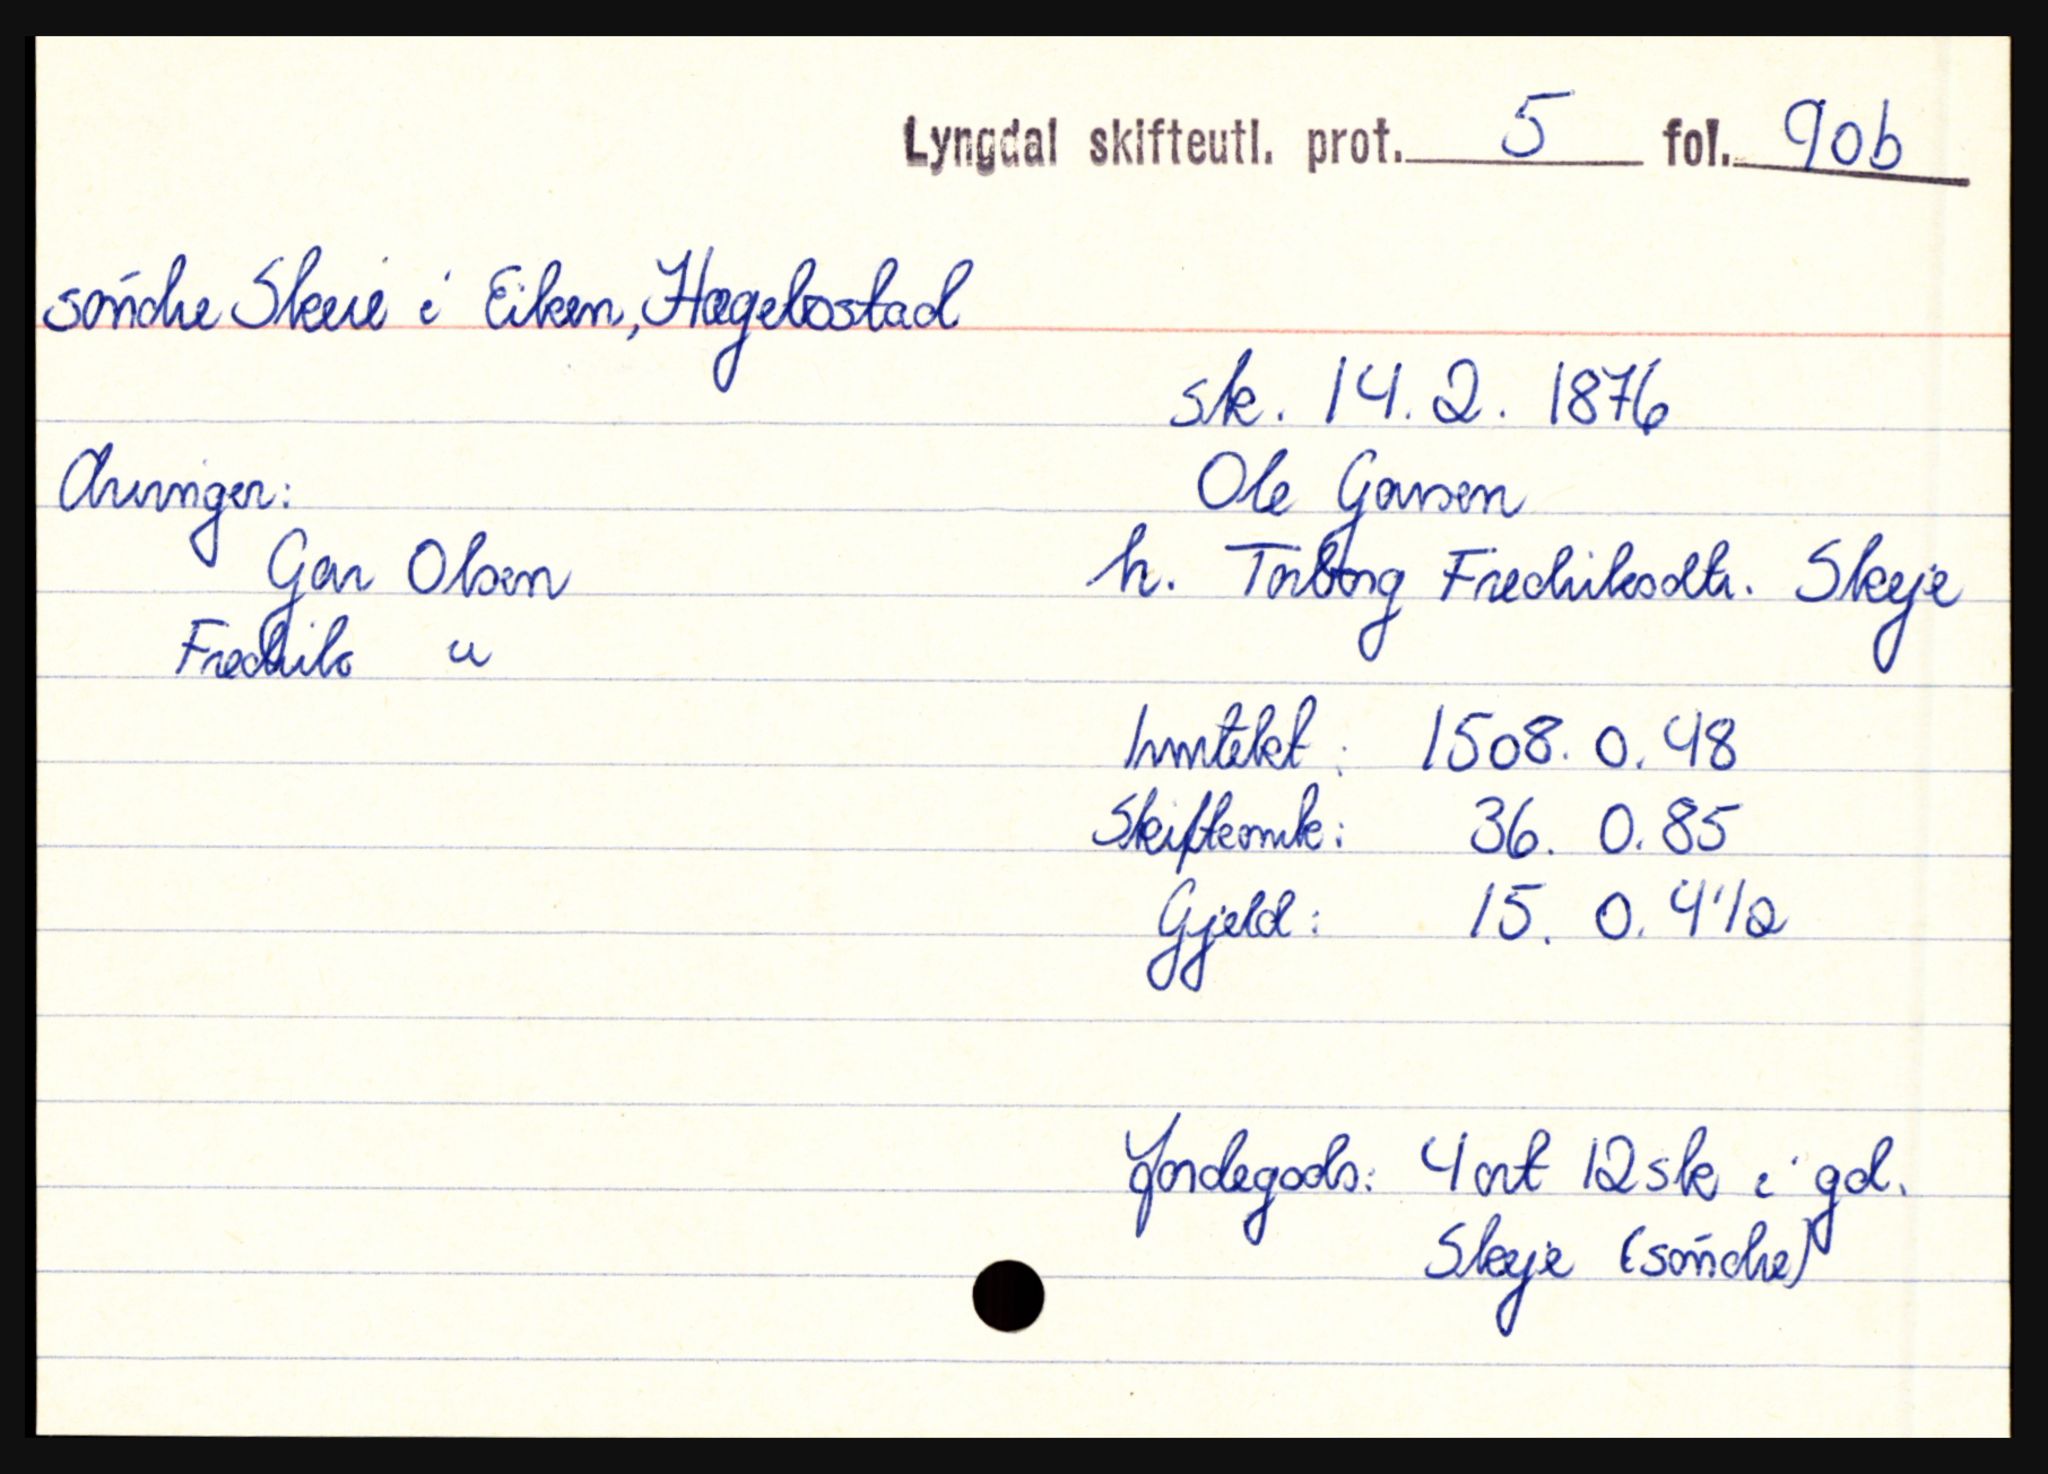 Lyngdal skifteutl. prot. 5 fol. 90b
søndre Skeie i Eiken, Hægebostad
sk. 14. 2. 1876
Arvinger:
Ole Garsen
Gar Olsen
h. Torborg Fredriksdtr. Skeje
Fredrik "
Inntekt: 1508. 0. 48
Skifteomk: 36. 0. 85
Gjeld: 15. 0. 4 1/2
Jordegods: 4 ort 12 sk i gd.
Skeje (søndre)